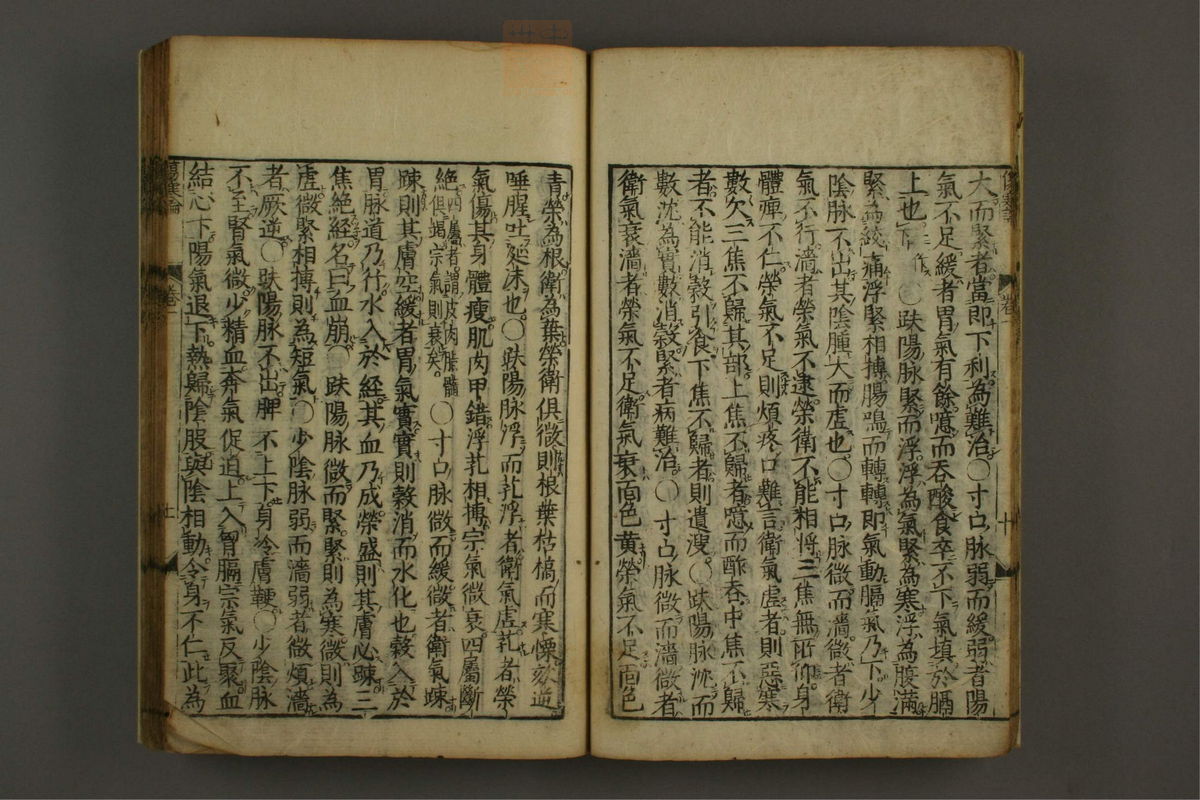 大而緊者當即下利為難治○寸口脉弱而緩弱者陽
氣不足緩者胃氣有餘噫而吞酸食卒不下氣填於膈
上也○趺陽脉緊而浮浮為氣緊為寒浮為腹滿
緊為絞痛浮緊相搏腸鳴而轉轉即氣動膈氣乃下少
陰脉不出其陰腫大而虛也○寸口脉微而濇微者衛
氣不行濇者榮氣不逮榮衛不能相將三焦無所仰身
體痺不仁榮氣不足則煩疼口難言衛氣虛者則惡寒
數欠三焦不歸其部上焦不歸者噫而酢吞中焦不歸
者不能消穀引食下焦不歸者則遺溲○趺陽脉沉而
數沈為實數消穀緊者病難治○寸口脉微而濇微者
衛氣衰濇者榮氣不足衛氣衰面色黄榮氣不足面色
傷寒論 卷一 十
青榮為根衛為葉榮衛俱微則根葉枯槁而寒慄欬逆
唾腥吐涎沫也○趺陽脉浮而芤浮者衛氣虛芤者榮
氣傷其身體瘦肌肉甲錯浮芤相搏宗氣微衰四屬斷
絶四屬者謂皮肉脂髓俱竭宗氣則衰矣○寸口脉微而緩微者衛氣踈
踈則其膚空緩者胃氣實實則穀消而水化也穀入於
胃脉道乃行水入於經其血乃成榮盛則其膚必踈三
焦絶經名曰血崩○趺陽脉微而緊緊則為寒微則為
虛微緊相搏則為短氣○少陰脉弱而濇弱者微煩濇
者厥逆○趺陽脉不出脾不上下身冷膚鞕○少陰脉
不至腎氣微少精血奔氣促迫上入胷膈宗氣反聚血
結心下陽氣退下熱歸陰股與陰相動令身不仁此為
傷寒論 卷一